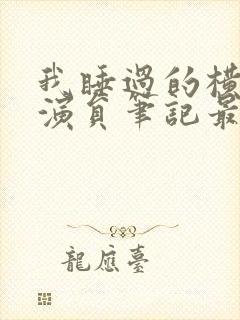 我睡過的橫
演員筆記最
龍應臺